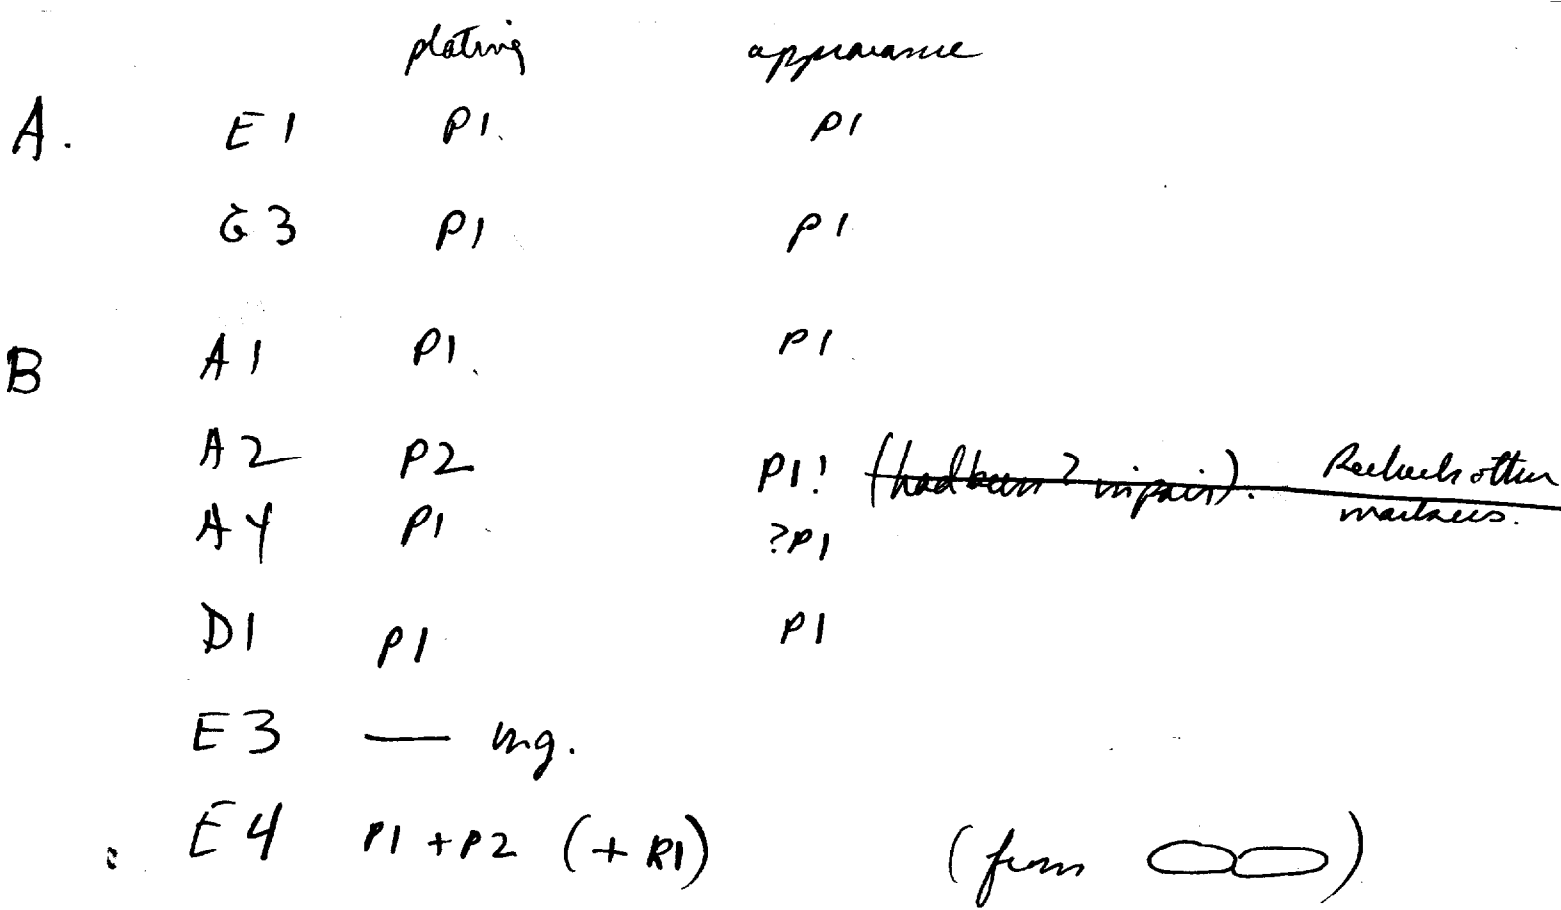 plating appearance
A. E1 P1. P1
G3 P1 P1
B A1 P1. P1
A2 P2 P1! (had been ? in pair). Recheck other
markers.
A4 P1 ?P1
D1 P1 P1
E3 — ng.
E4 P1 + P2 (+ R1) (from )